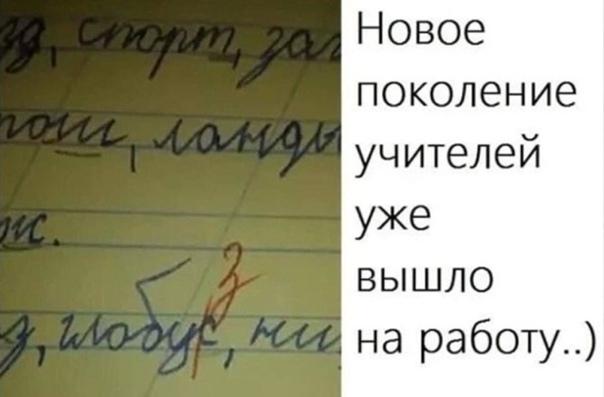 спорт, за
пош, ланды
ж.
з, глобус, ни
З
Новое
поколение
учителей
уже
вышло
на работу..)